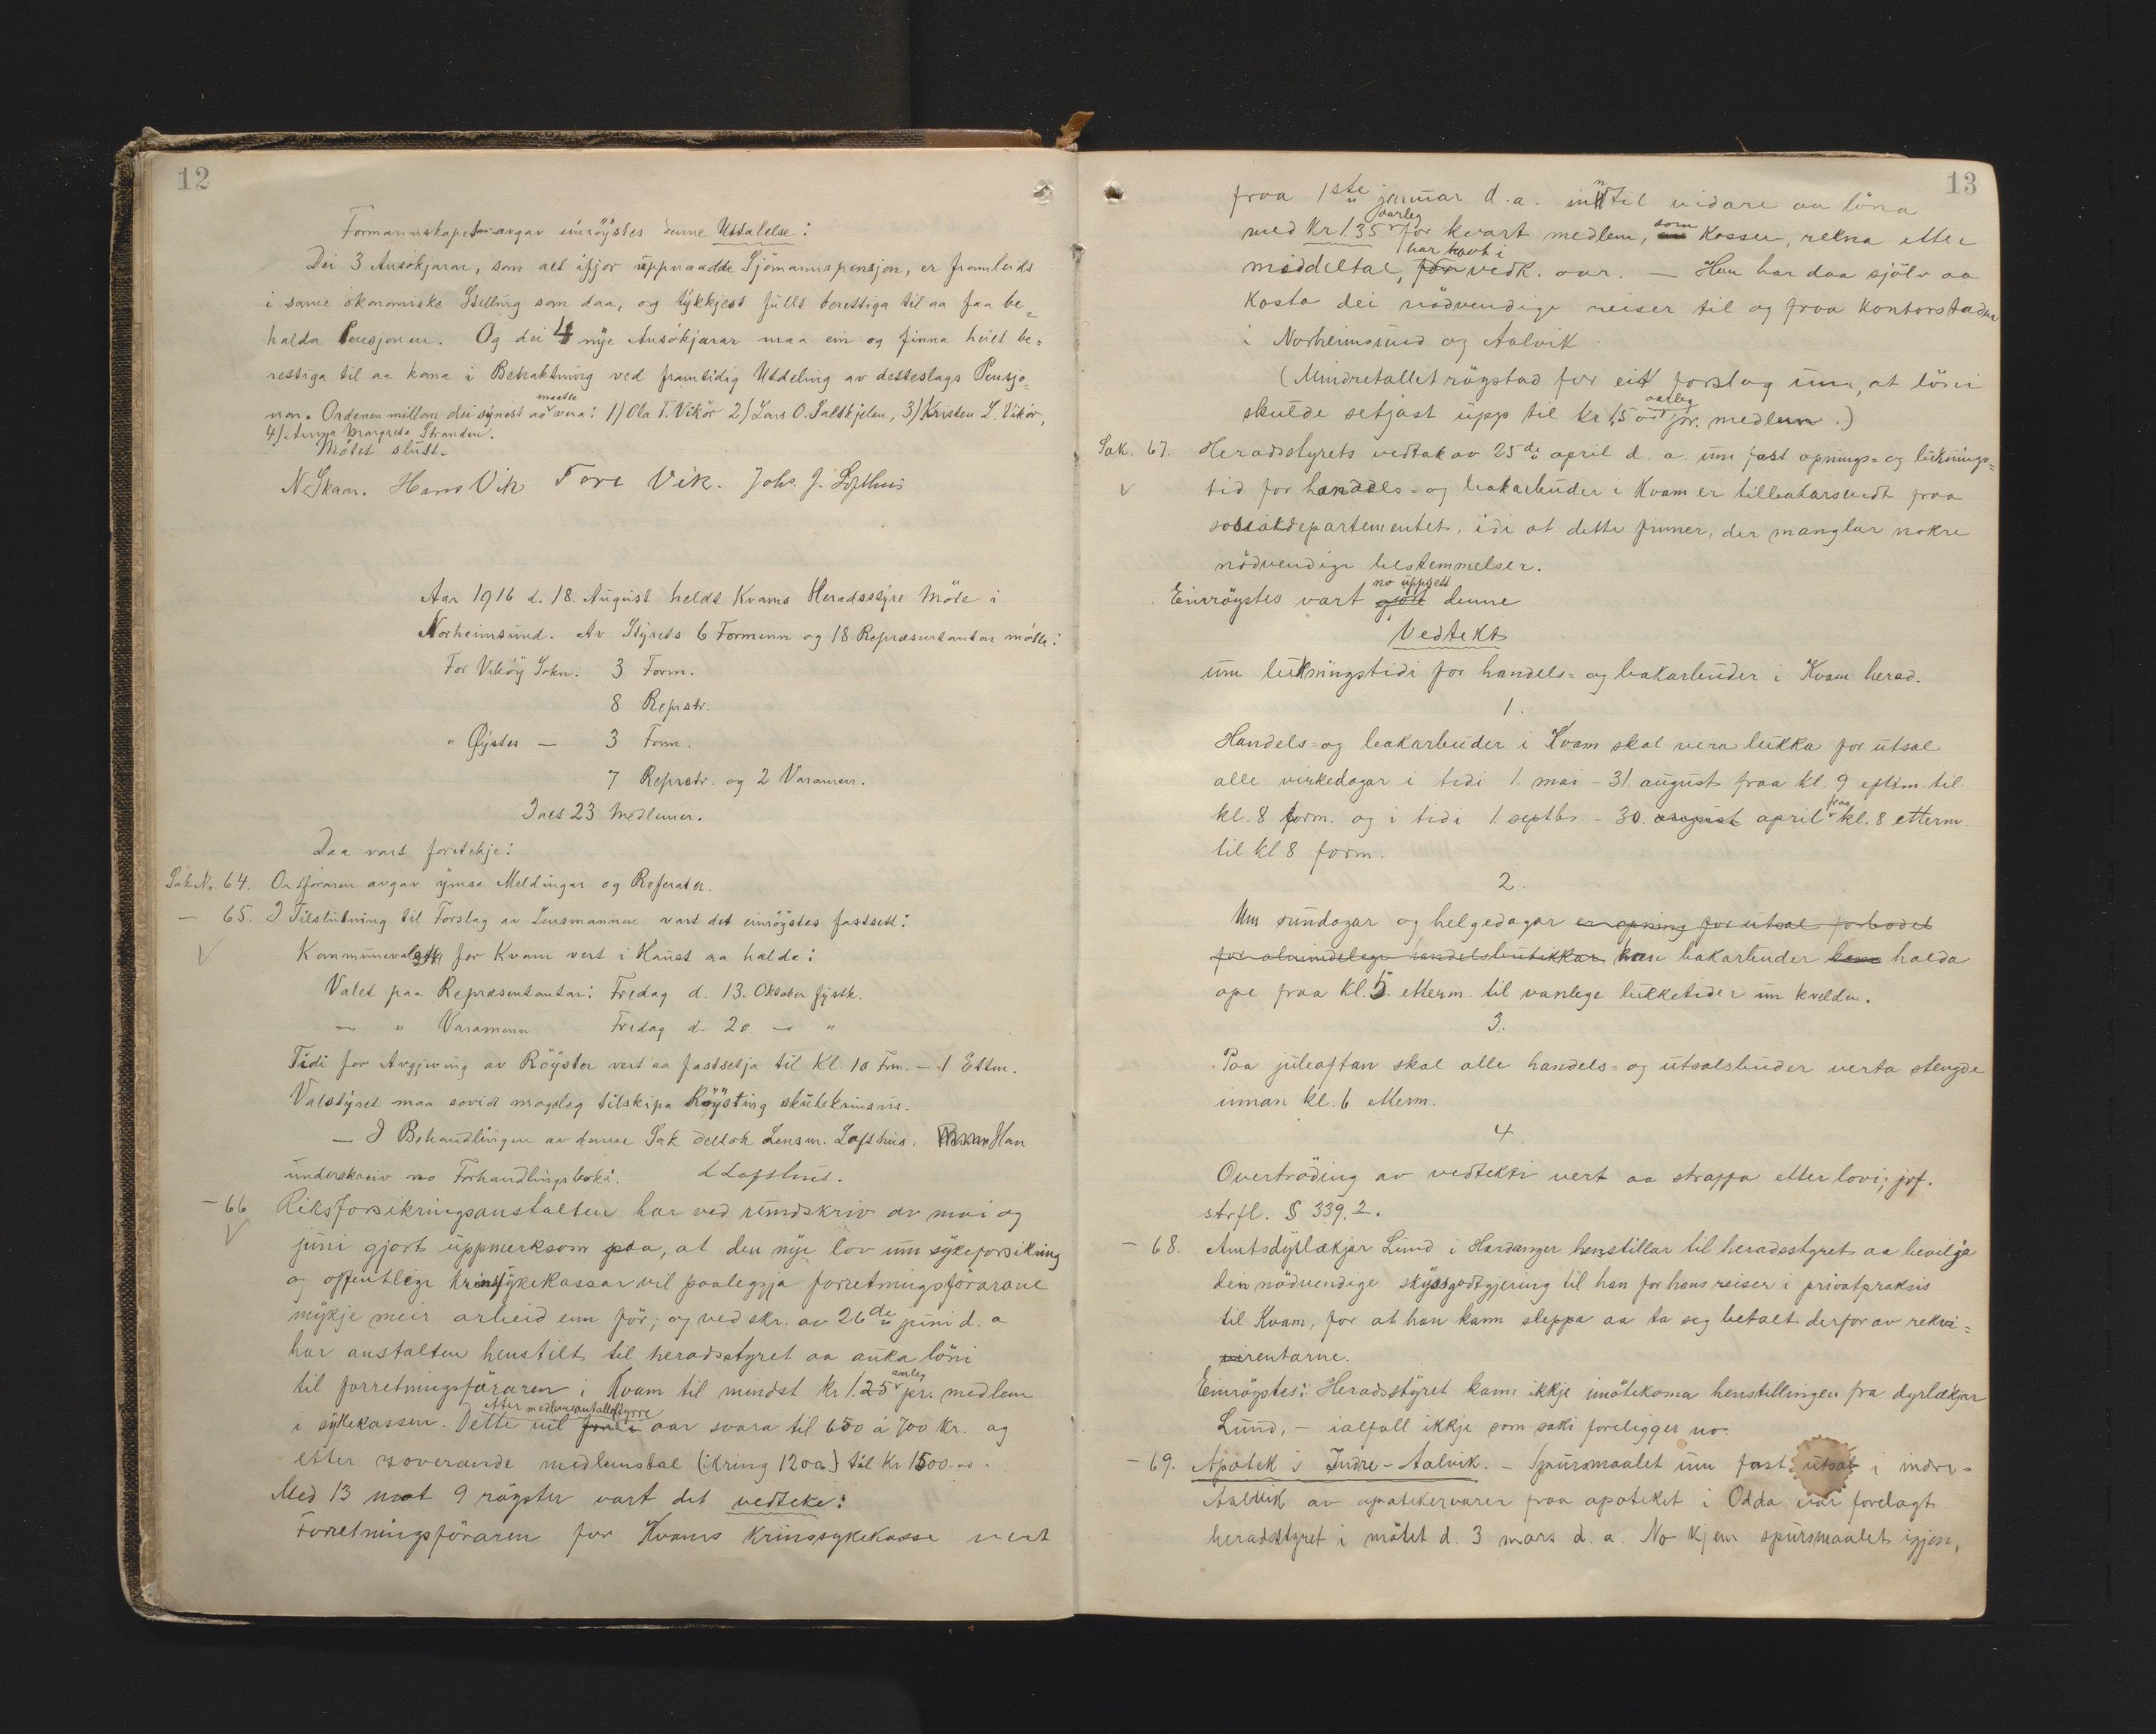 12
Formannskapet avgav einrøystes denne Uttalelse:
Dei 3 Ansøkjarar, som alt ifjor uppnaadde Sjömannspensjon, er framleids
i same økonomiske Stelling som daa, og tykkjest fullt berettiga til aa faa be=
halda Pensjonen. Og dei 4 nye Ansøkjarar maa ein og finna heilt be=
rettiga til aa koma i Betraktning ved framtidig Utdeling av detteslags Pensjo=
nar. Ordenen millom dei synest aa maatte vera: 1) Ola T. Vikør 2) Lars O. Saltkjelen, 3) Kristen L. Vikør,
4) Anna Margreta Stranden.
Møtet slutt.
N. Skaar. Hans Vik Tore Vik. Johs. J. Lofthus
Aar 1916 d. 18. August heldt Kvams Heradsstyre Møte i
Norheimsund. Av Styrets 6 Formenn og 18 Repræsentantar møtte:
For Vikøy Sokn: 3 Form.
8 Reprstr.
" Øystes — 3 Form.
7 Reprstr. og 2 Varamenn.
Ialt 23 Medlemer.
Daa vart foretekje:
Sak Nr. 64. Ordføraren avgav ymse Meldingar og Referater.
— 65. I Tilslutning til Forslag av Lensmannen vart det einrøystes fastsett:
Kommunevalet for Kvam vert i Haust aa halde:
Valet paa Repræsentantar: Fredag d. 13. Oktober fystk.
— " Varamenn Fredag d. 20 — "
Tidi for Avgjeving av Røyster vert aa fastsetja til Kl. 10 Frm. — 1 Ettm.
Valstyret maa sovidt mogeleg tilskipa Røysting skulekrinsvis.
— I Behandlingen av denne Sak deltok Lensm. Lofthus. Han
underskreiv no Forhandlingsboki. L Lofthus.
— 66 Riksforsikringsanstalten har ved rundskriv av mai og
juni gjort uppmerksom paa, at den nye lov um sykeforsikring
og offentlige krinssykekassar vil paaleggja forretningsførarane
mykje meir arbeid enn før; og ved skr. av 26de juni d. a
har anstalten henstilt til heradsstyret aa auka løni
til forretningsføraren i Kvam til mindst kr 1.25 aarleg pr. medlem
i sykekassen. Dette vil for i etter medlemsantallet fyrre aar svara til 650 á 700 kr. og
etter noverande medlemstal (ikring 1200) til kr 1500.00.
Med 13 mot 9 røyster vart det vedteke:
Forretningsføraren for Kvams krinssykekasse vert
13
fraa 1ste januar d. a. inntil vidare aa løna
med kr 1.35 aarleg for kvart medlem, som kassen, rekna etter
middeltal, har havt i for vedk. aar. — Han har daa sjølv aa
kosta dei nödvendige reiser til og fraa kontorstaden
i Norheimsund og Aalvik.
(Mindretallet røystad for eit forslag um, at löni
skulde setjast upp til kr 1,50 aarleg pr. medlem.)
Sak. 67. Heradsstyrets vedtak av 25de april d. a. um fast opnings= og luknings=
tid for handels= og bakarbuder i Kvam er tilbakarsendt fraa
socialdepartementet, idi at dette finner, der manglar nokre
nödvendige bestemmelser.
Einrøystes vart gjort no uppsett denne
Vedtekt
um lukningstidi for handels= og bakarbuder i Kvam herad.
1.
Handels= og bakarbuder i Kvam skal vera lukka for utsal
alle virkedagar i tidi 1. mai – 31. august fraa kl. 9 eftm. til
kl. 8 form. og i tidi 1. septbr. – 30. august april fraa kl. 8 etterm.
til kl 8 form.
2.
Um sundagar og helgedagar er opning for utsal forbodet
for almindelege handelsbutikkar kan bakarbuder kan halda
ope fraa kl. 5. etterm. til vanlege lukketider um kvelden.
3.
Paa juleaftan skal alle handels= og utsalsbuder verta stengde
innan kl. 6 etterm.
4.
Overtröding av vedtekti vert aa straffa etter lovi; jvf.
strfl. § 339. 2.
— 68. Amtsdyrlækjar Lund i Hardanger henstillar til heradsstyret aa bevilja
dei nödvendige skyssgodtgjering til han for hans reiser i privatpraksis
til Kvam, for at han kann sleppa aa ta seg betalt derfor av rekvi=
rentarne.
Einrøystes: Heradsstyret kann ikkje imøtekoma henstillingen fra dyrlækjar
Lund, – ialfall ikkje som saki foreligger no.
— 69. Apotek i Indre-Aalvik. – Spursmaalet um fast utsal i indre=
Aalvik av apotekervarer fraa apoteket i Odda var forelagt
heradsstyret i møtet d. 3 mars d. a. No kjem spursmaalet igjen,